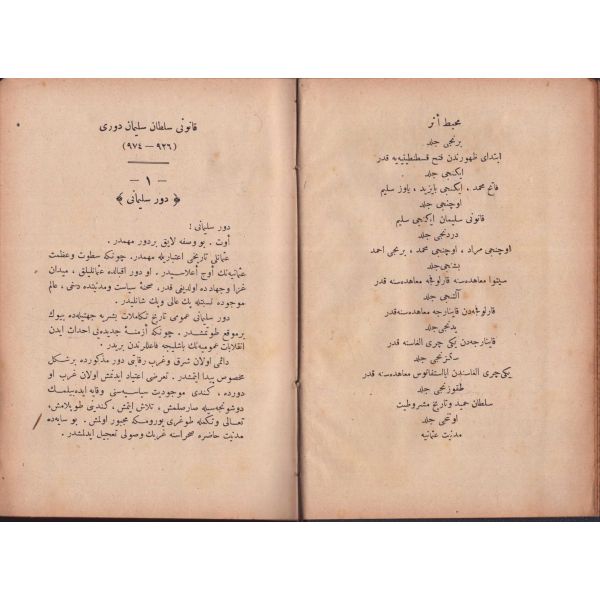 محیط أثر
برنجی جلد
ابتدای ظهورندن فتح قسطنطینیه‌یه قدر
ایکنجی جلد
فاتح محمد ، ایکنجی بایزید ، یاوز سلیم
اوچنجی جلد
قانونی سلیمان ایکنجی سلیم
دردنجی جلد
اوچنجی مراد ، اوچنجی محمد ، برنجی احمد
بشنجی جلد
سیتوا معاهده‌سنه قارلوفجه معاهده‌سنه قدر
آلتنجی جلد
قارلوفجه‌دن قاینارجه معاهده‌سنه‌قدر
یدنجی جلد
قاینارجه‌دن یکی چری الغاسنه قدر
سکزنجی جلد
یکی‌چری الغاسندن ایاستفانوس معاهده‌سنه قدر
طقوزنجی جلد
سلطان حمید وتاریخ مشروطیت
اوننجی جلد
مدنیت عثمانیه
قانونی سلطان سلیمان دوری
(٩٢٦ — ٩٧٤)
— ١ —
﴿ دور سلیمانی ﴾
دور سلیمانی !
أوت . بو وصفه لایق بردور مهمدر .
عثمانلی تاریخی اعتباریله مهمدر. چونکه سطوت وعظمت
عثمانیه‌نك أوج أعلاسیدر ، او دور اقبالده عثمانلیلق ، میدان
غزا وجهادده اولدیغی قدر، صحنهٔ سیاست ومدنیتده دخی ، عالم
موجوده نسبتله پك عالی وپك شانلیدر.
دور سلیمانی عمومی تاریخ تکاملات بشریه جهتیله‌ده بیوك
برموقع طوتمشدر . چونکه أزمنهٔ جدیده‌یی احداث ایدن
انقلابات عمومیه‌نك باشلیجه فاعللرندن بریدر .
دائمی اولان شرق وغرب رقابتی دور مذکورده برشکل
مخصوص پیدا ایتمشدر . تعرضی اعتیاد ایدنمش اولان غرب او
دورده ، کندی موجودیت سیاسیه‌سنی وقایه ایده‌بیلمك
دوشونجه‌سیله صارصلمش ، تلاش ایتمش ، کندینی طوپلامش،
تعالی وتکمله طوغری یورومکه مجبور اولمش ، بو سایه‌ده
مدنیت حاضره صحراسنه غربك وصولی تعجیل ایدلمشدر .